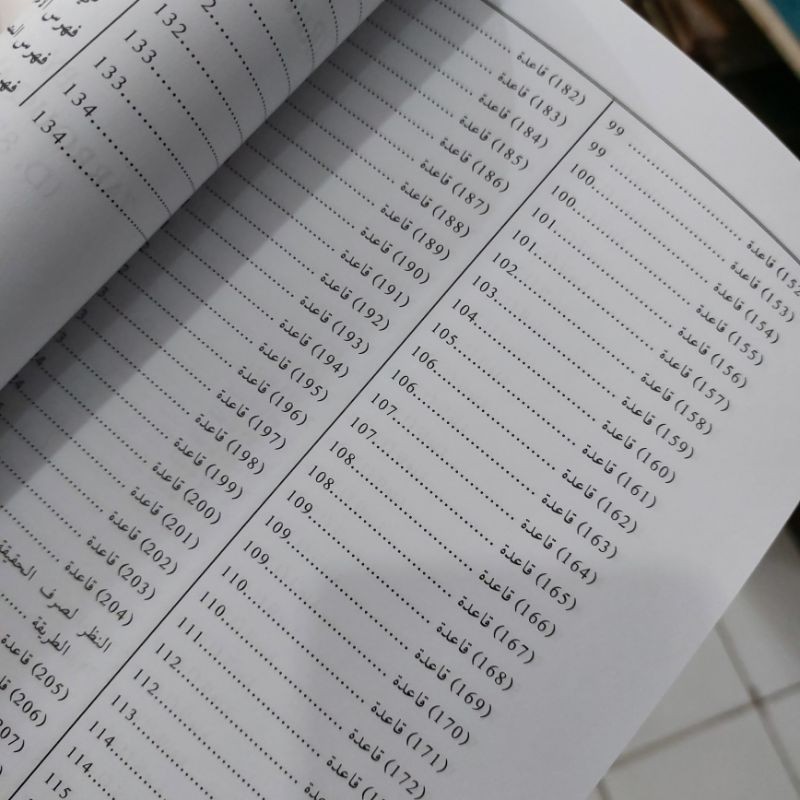 (152) قاعدة ........................ 99
(153) قاعدة ........................ 99
(154) قاعدة ........................ 100
(155) قاعدة ........................ 100
(156) قاعدة ........................ 101
(157) قاعدة ........................ 101
(158) قاعدة ........................ 102
(159) قاعدة ........................ 103
(160) قاعدة ........................ 104
(161) قاعدة ........................ 105
(162) قاعدة ........................ 106
(163) قاعدة ........................ 106
(164) قاعدة ........................ 107
(165) قاعدة ........................ 107
(166) قاعدة ........................ 108
(167) قاعدة ........................ 108
(168) قاعدة ........................ 109
(169) قاعدة ........................ 109
(170) قاعدة ........................ 109
(171) قاعدة ........................ 110
(172) قاعدة ........................ 110
قاعدة ........................ 111
........................ 112
........................ 112
........................ 113
........................ 114
........................ 114
........................ 115
(182) قاعدة ........................
(183) قاعدة ........................
(184) قاعدة ........................
(185) قاعدة ........................
(186) قاعدة ........................
(187) قاعدة ........................
(188) قاعدة ........................
(189) قاعدة ........................
(190) قاعدة ........................
(191) قاعدة ........................
(192) قاعدة ........................
(193) قاعدة ........................
(194) قاعدة ........................
(195) قاعدة ........................
(196) قاعدة ........................
(197) قاعدة ........................
(198) قاعدة ........................
(199) قاعدة ........................
(200) قاعدة ........................
(201) قاعدة ........................
(202) قاعدة ........................
(203) قاعدة ........................
(204) قاعدة ........................
النظر لصرف الحقيقة
الطريقة ........
(205) قاعدة
(206)
207)
........................ 132
........................ 133
........................ 133
........................ 134
........................ 134
فهرس
فهرس